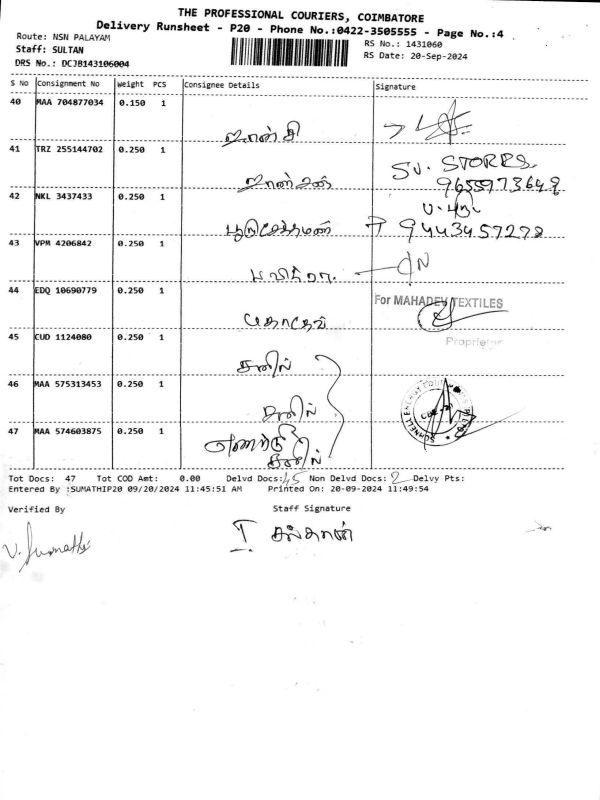 THE PROFESSIONAL COURIERS, COIMBATORE
Delivery Runsheet - P20 - Phone No.:0422-3505555 - Page No.:4
Route: NSN PALAYAM
RS No.: 1431060
Staff: SULTAN
RS Date: 20-Sep-2024
DRS No.: DCJB143106004
S No Consignment No Weight PCS Consignee Details Signature
40 MAA 704877034 0.150 1
ஜான்சி
41 TRZ 255144702 0.250 1 SV. STORES
ஜான்சன் 9655973649
42 NKL 3437433 0.250 1
9443457278
43 VPM 4206842 0.250 1
பவித்ரா.
44 EDQ 10690779 0.250 1 For MAHADEV TEXTILES
மகாதேவ்
Proprietor
45 CUD 1124080 0.250 1
சனில்
46 MAA 575313453 0.250 1
சனில்
47 MAA 574603875 0.250 1
எனர்ஜி
சனில்
Tot Docs: 47 Tot COD Amt: 0.00 Delvd Docs: 45 Non Delvd Docs: 2 Delvy Pts:
Entered By :SUMATHIP20 09/20/2024 11:45:51 AM Printed On: 20-09-2024 11:49:54
Verified By Staff Signature
V. Sumathi
சுல்தான்